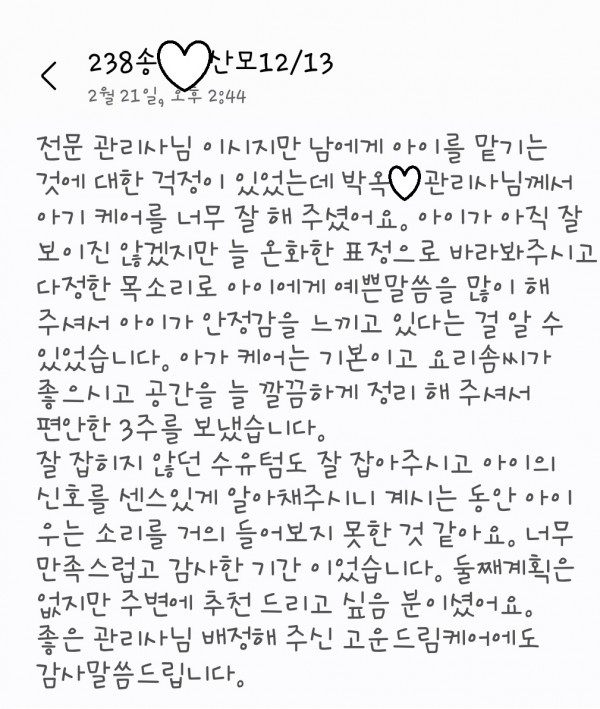 238송♡산모12/13
2월 21일, 오후 2:44
전문 관리사님 이시지만 남에게 아이를 맡기는
것에 대한 걱정이 있었는데 박옥♡관리사님께서
아기 케어를 너무 잘 해 주셨어요. 아이가 아직 잘
보이진 않겠지만 늘 온화한 표정으로 바라봐주시고
다정한 목소리로 아이에게 예쁜말씀을 많이 해
주셔서 아이가 안정감을 느끼고 있다는 걸 알 수
있었습니다. 아가 케어는 기본이고 요리솜씨가
좋으시고 공간을 늘 깔끔하게 정리 해 주셔서
편안한 3주를 보냈습니다.
잘 잡히지 않던 수유텀도 잘 잡아주시고 아이의
신호를 센스있게 알아채주시니 계시는 동안 아이
우는 소리를 거의 들어보지 못한 것 같아요. 너무
만족스럽고 감사한 기간 이었습니다. 둘째계획은
없지만 주변에 추천 드리고 싶음 분이셨어요.
좋은 관리사님 배정해 주신 고운드림케어에도
감사말씀드립니다.